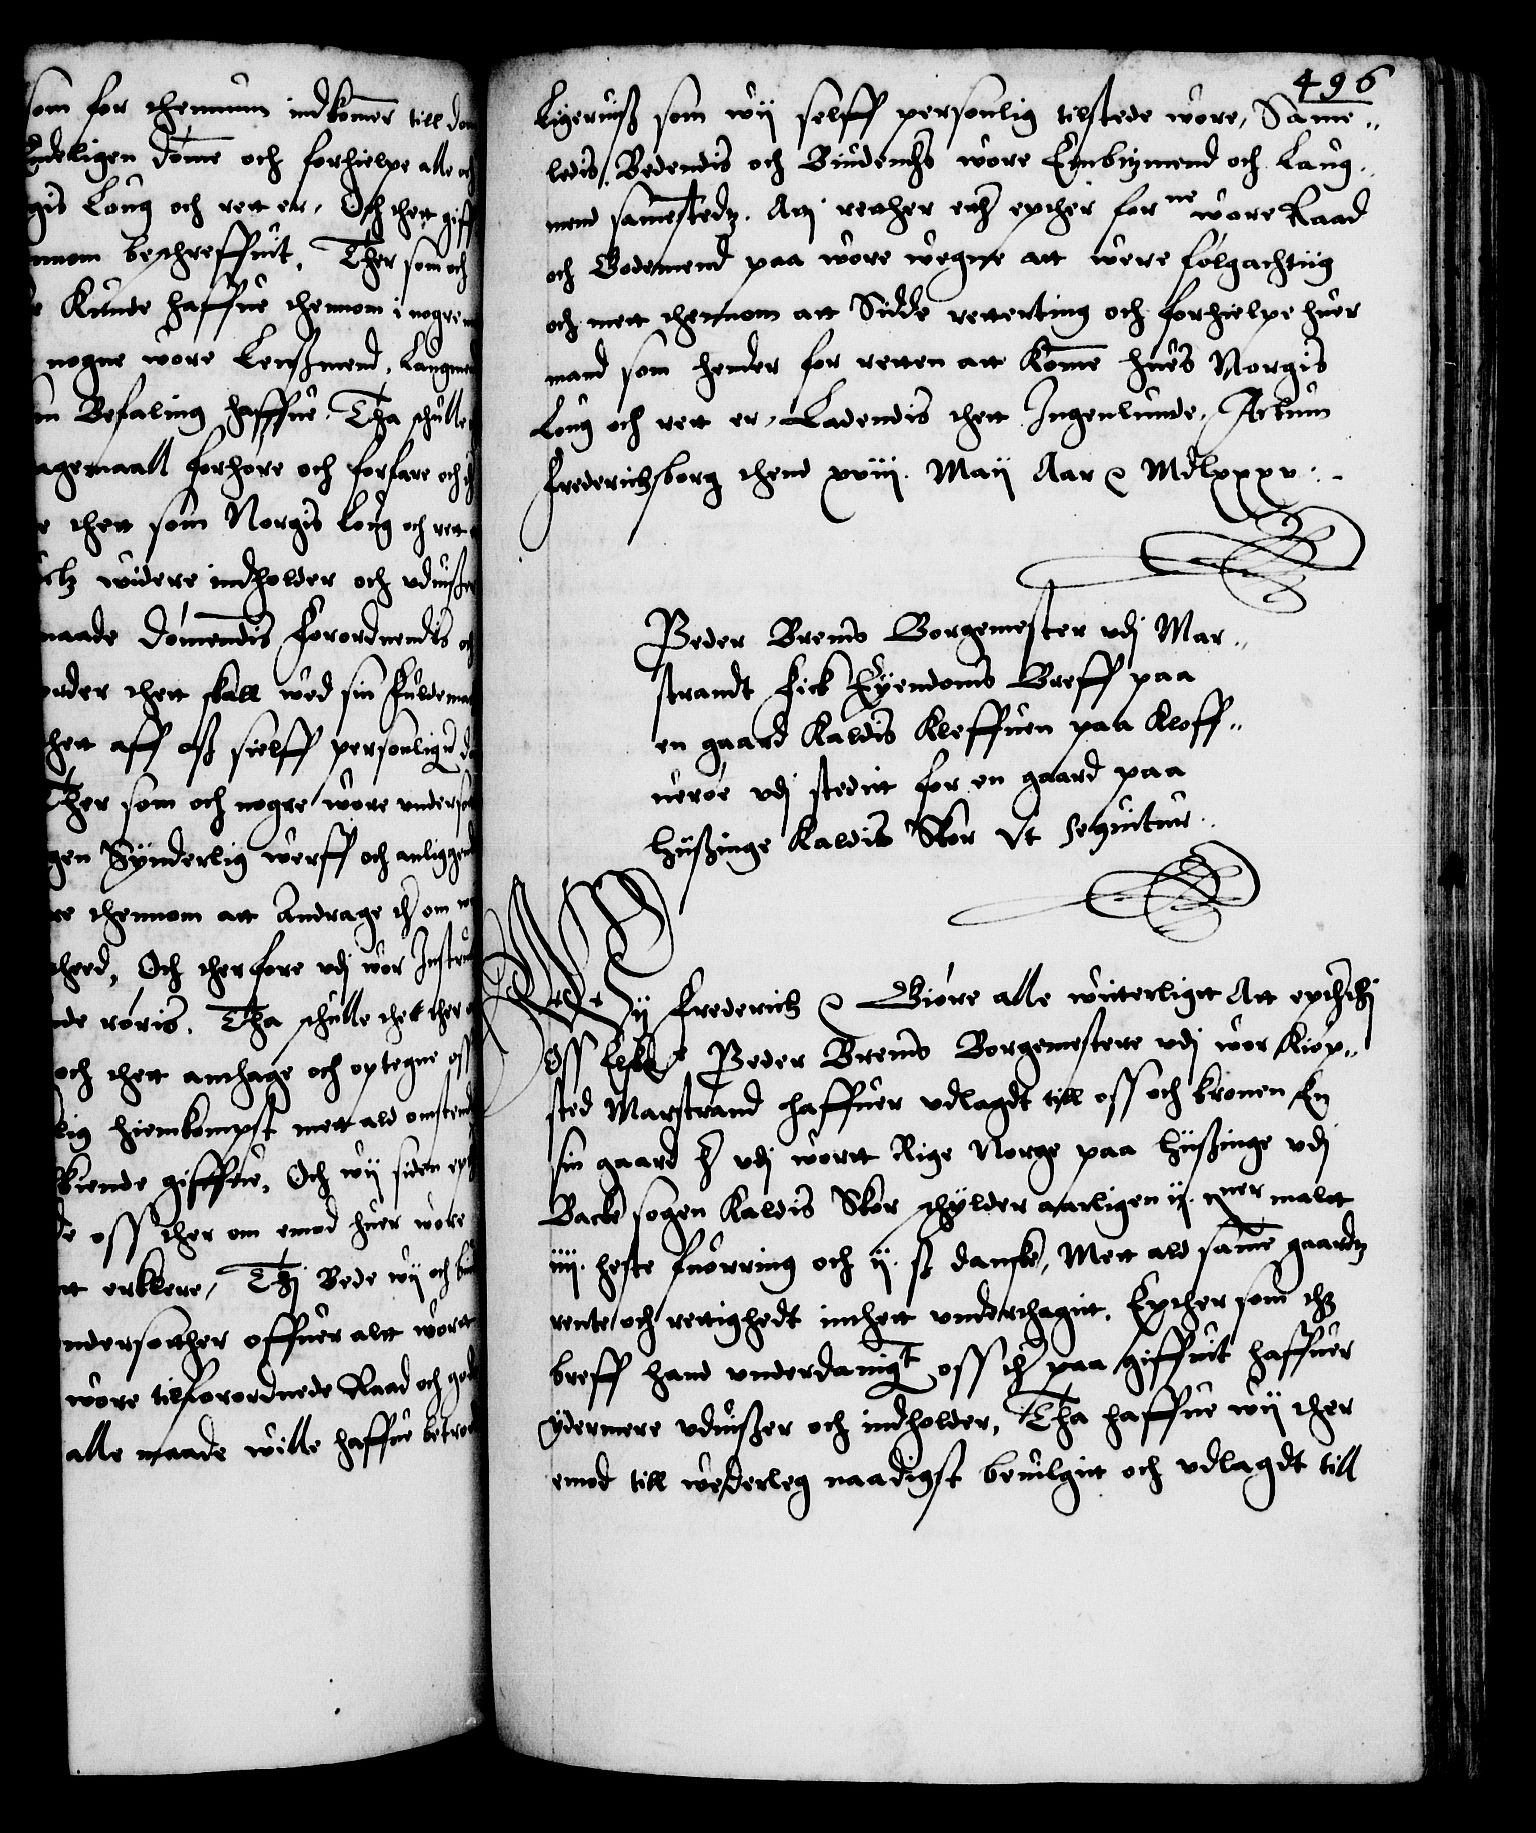 som for thennum indkomer till dom
Endeligen dome och forhielpe alle och
gis Loug och rett er, Och thett giff
nnom beschreffuit, Ther som och
Kunde haffue thennom i nogre m
nogne wore Lenßmend, Laugmen
Befaling haffue. Tha schulle
agemaall forhøre och forfare och
thett som Norgis Loug och rett
widere indholder och vduißer
maade dømendis Forordnendis och
order thett skall wed sin Fuldemac
thett aff oß sielff personligen
Ther som och nogre wore vnderso
gen Synderlig werff och anliggend
re thennom att Andrage
heed, Och therfore vdj wor Instru
de røris. Tha schulle thett ther
och thett anthage och optegne oss
lig hiemkompst mett ald omstend
kiende giffue, Och wij siden
de oss ther om emod huer wore
tt erklere, Thj Bede wij och
vndersotther offuer alt wort
wore tilforordnede Raad och god
alle maade wille haffue betro
496
Ligeruiß som wij selff personlig tilstede wore, Same„
ledis Bedendis och Biudendis wore Embitzmend och Laug„
mend samestedz. Atj rether eder epther forne wore Raad
och Godemend paa wore wegne att were følgachtiig
och mett thennom att Sidde retterting och forhielpe huer
mand som hender for retten att Kome hues Norgis
Loug och rett er, Ladendis thett Ingenlunde, Actum
Frederichsborg thend xviij. Maij Aar &c MDlxxxv.
Peder Brems Borgemester vdj Mar„
strandt Fick Eyendoms Breff paa
en gaard Kaldis Kleffuen paa Kloff„
uerøe vdj stedet for en gaard paa
hüßinge Kaldis Skor Ut sequitur.
Wij Frederich &c Giøre alle witterligtt Att epthi
Oss Elskt Peder Brems Borgemestere vdj wor Kiøp„
sted Marstrand haffuer vdlagdt till oss och kronen En
sin gaard vdj wortt Rige Norge paa hüßinge vdj
Backe sogen Kaldis Skor schylder aarligen ij. maltt
iiij. heste fuørring och ij. ß danske, Mett ald same gaardz
rente och rettighedt inthett vnderthagitt. Epther som
breff hand vnderdanigst oss paa giffuit haffuer
ydermere vduißer och indholder, Tha haffue wij ther
emod till wederleg naadigst beuilgit och vdlagdt till